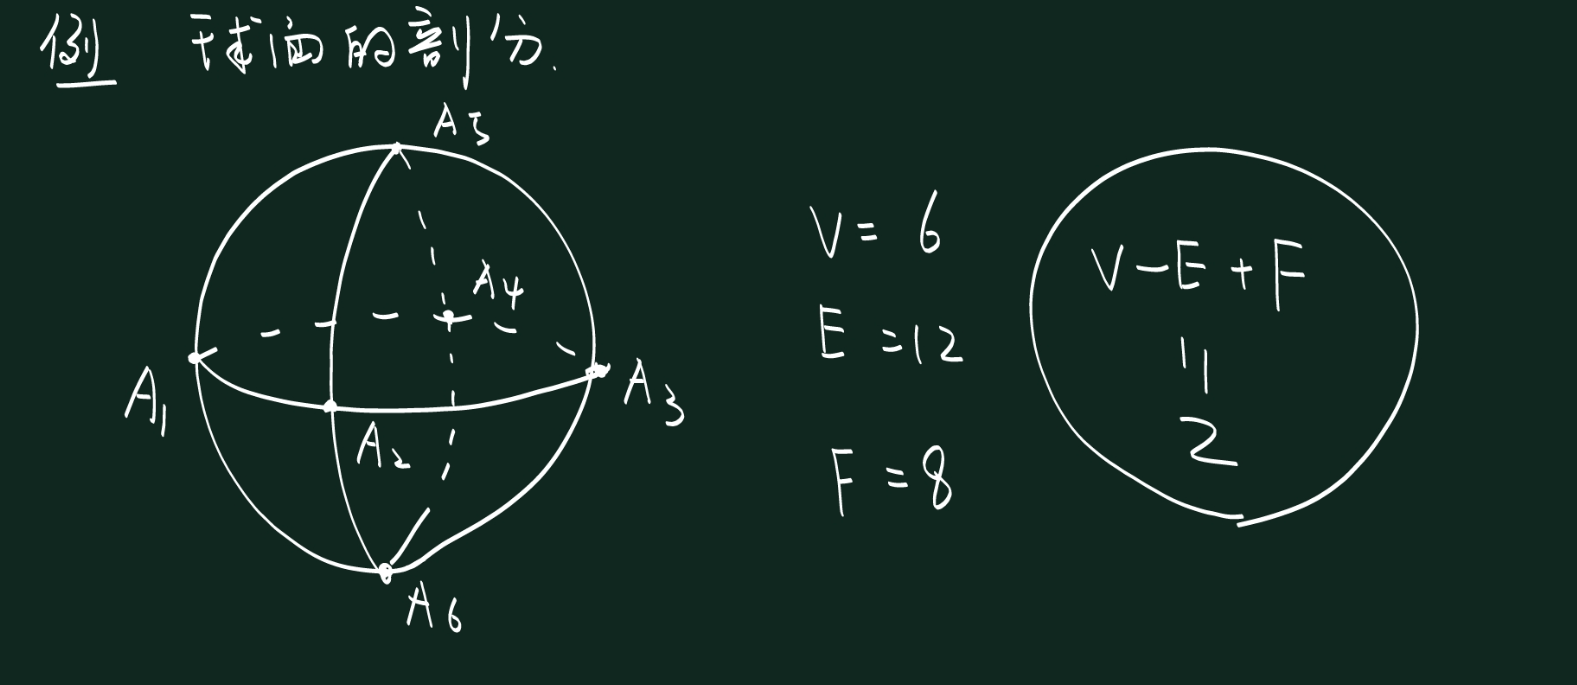 例 球面的剖分.
A5
A4
A1
A2
A3
A6
V = 6
E = 12
F = 8
V - E + F
=
2